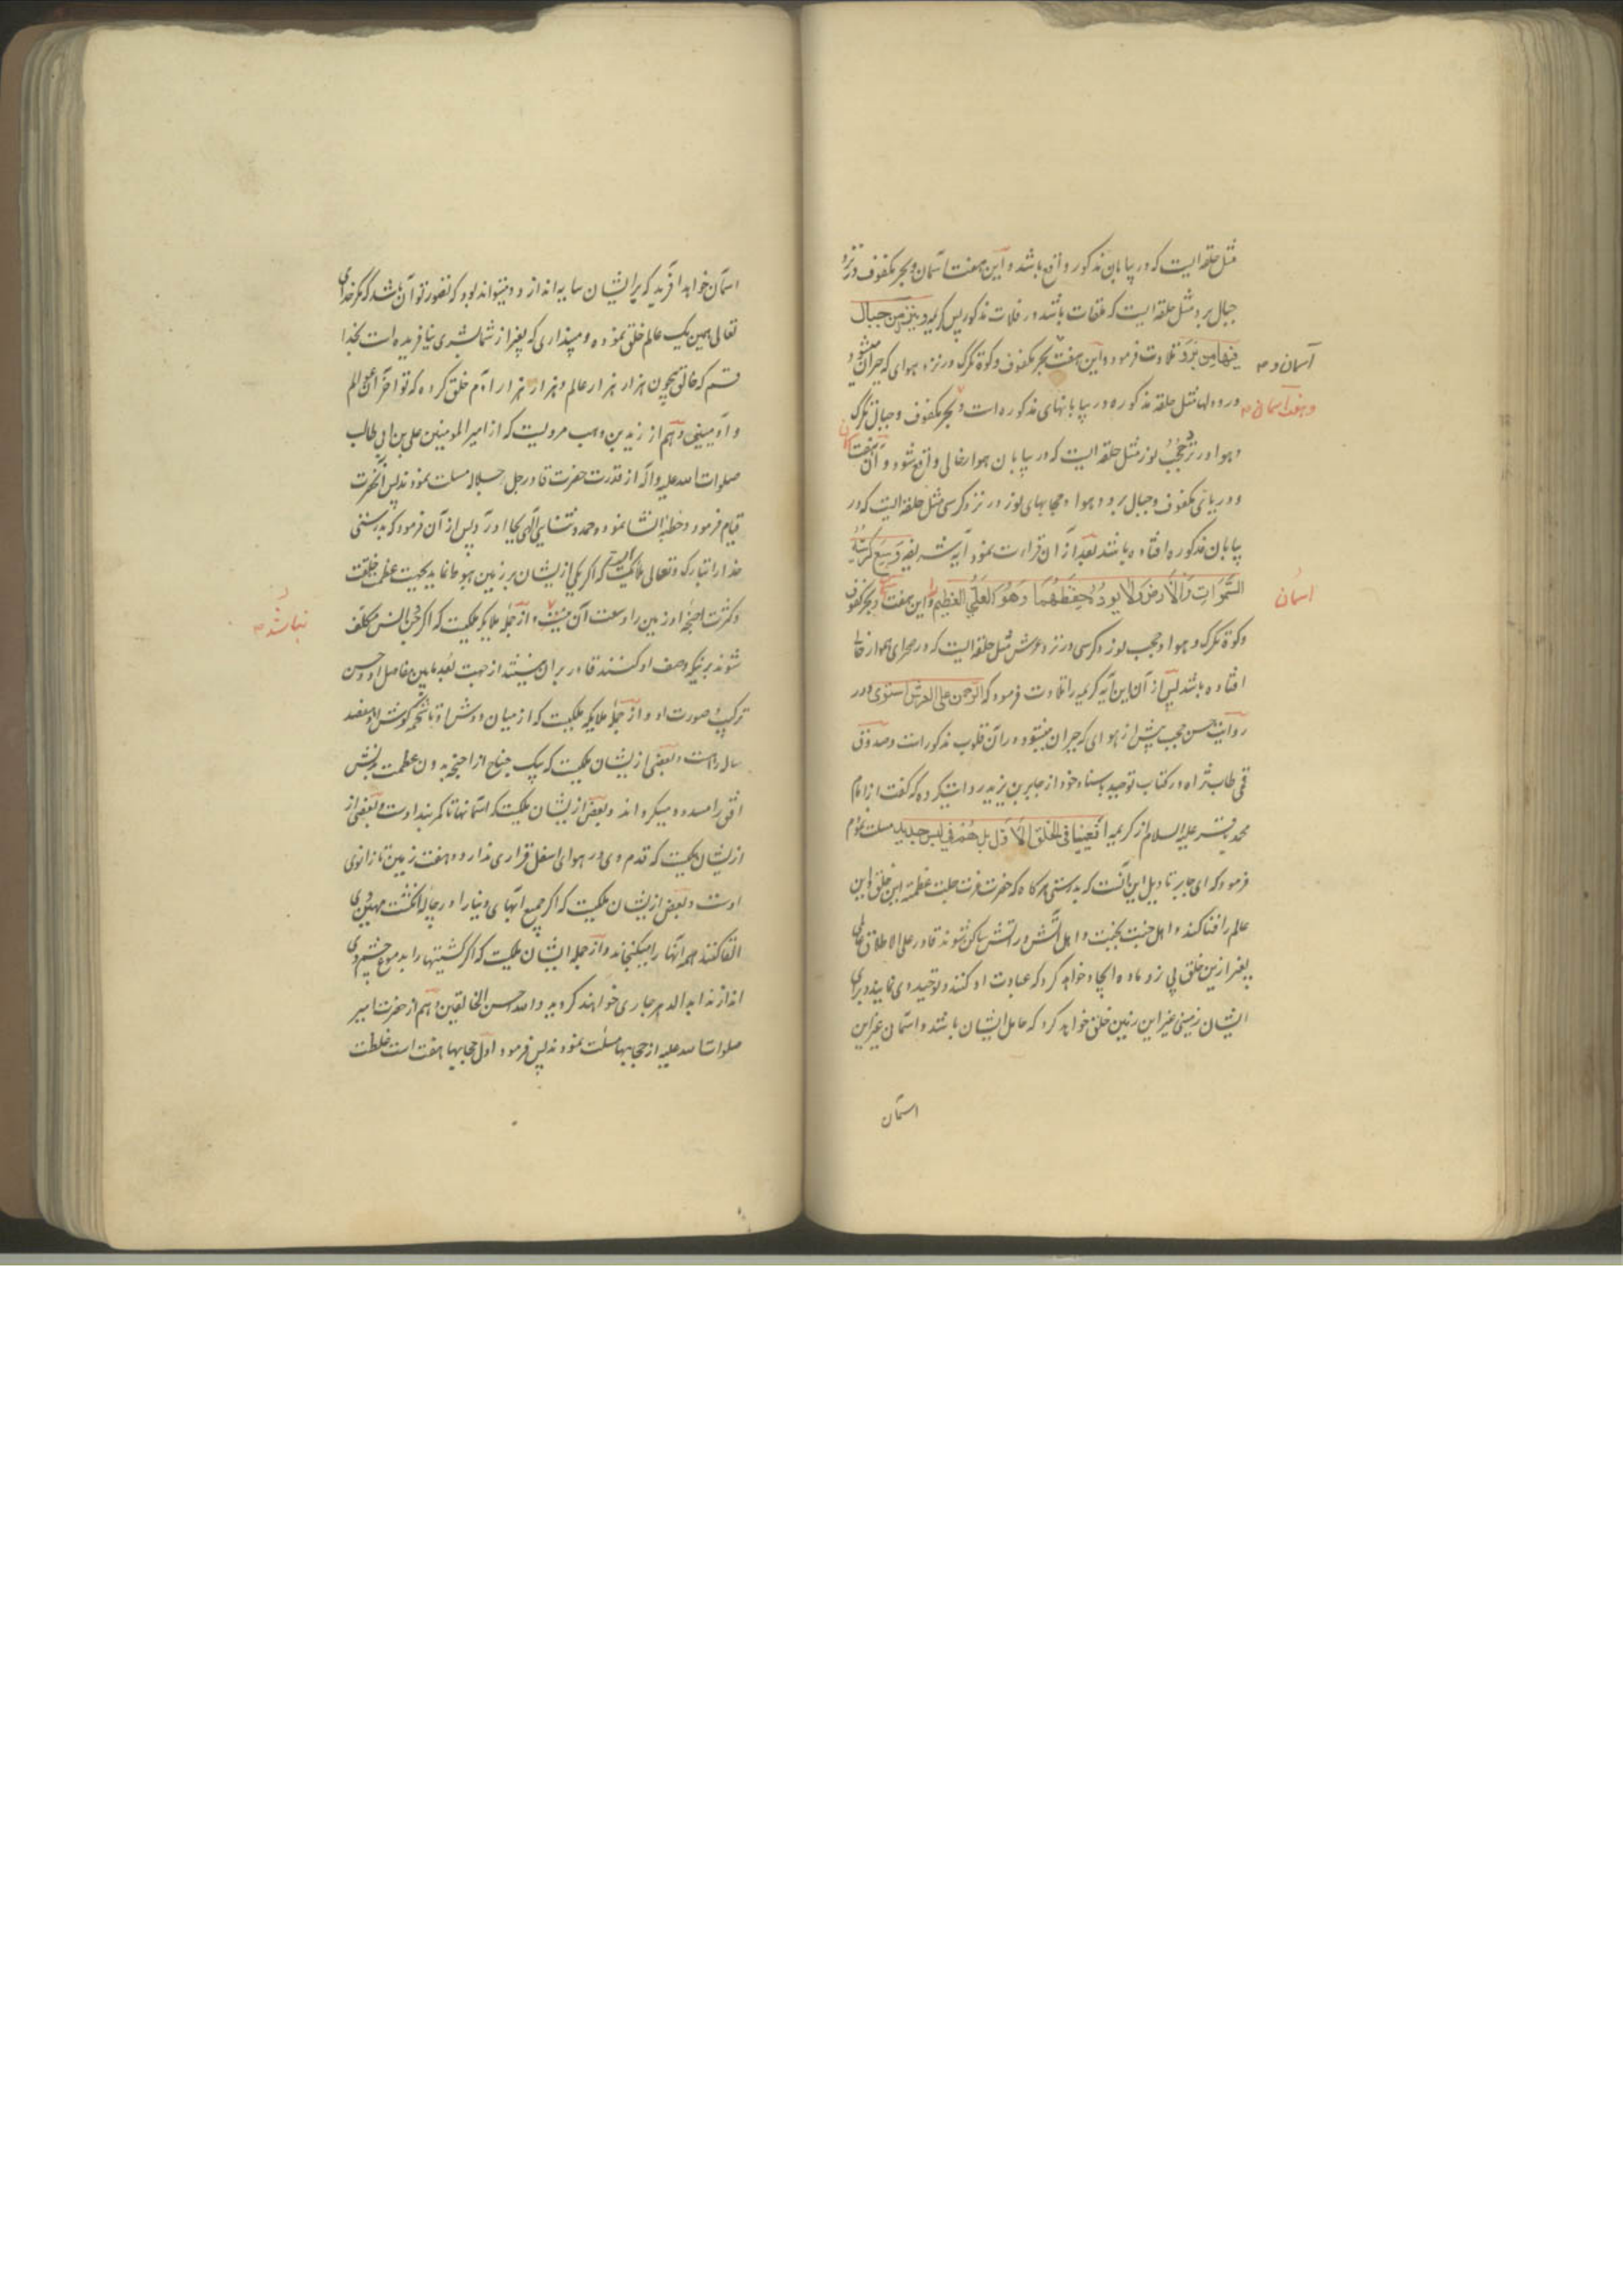 مثل حلقه ایست که در بیابان مذکور واقع باشد و این هفت آسمان و بحر مکفوف در نزد
جبال برد مثل حلقه ایست که ملقات باشد در فلات مذکور پس کریمه و ینزل من جبال
فیها من برد تلاوت فرمود و این هفت بحر مکفوف و کوه تگرگ در نزد هوای که حیران میشود
آسمان و
در و دلها مثل حلقه مذکوره در بیابانهای مذکوره است و بحر مکفوف و جبال تگرگ
و هفت آسمان
و هوا در نزد حجب نور مثل حلقه ایست که در بیابان هوار خالی واقع شود و آن هفت
و دریای مکفوف و جبال برد و هوا و حجابهای نور در نزد کرسی مثل حلقه ایست که در
بیابان مذکوره افتاده باشند بعد از آن قرارت نمود آیه شریفه وسع کرسیه
السموات والارض ولا یوده حفظهما وهو العلی العظیم و این هفت و بحر مکفوف
آسمان
و کوه تگرگ و هوا و حجب نور و کرسی در نزد عرش مثل حلقه ایست که در صحرای هموار خالی
افتاده باشند پس از آن این آیه کریمه را تلاوت فرمود که الرحمن علی العرش استوی و در
روایت حسن محبوب پیش از هوای که حیران میشود در آن قلوب مذکور است و صدوق
قمی طاب ثراه در کتاب توحید باسناد خود از جابر بن یزید روایت کرده که گفت از امام
محمد باقر علیه السلام از کریمه افعیینا فی الخلق الاول بل هم فی لبس من خلق جدید مسلت نمودم
فرمود که ای جابر تاویل این آنست که بدرستی هرگاه که حضرت عزت جلت عظمته این خلق و این
عالم را فنا کند و اهل جنت بجنت و اهل آتش در آتش ساکن شوند قادر علی الاطلاق عالمی
بغیر ازین خلق بی نر و ماده ایجاد خواهد کرد که عبادت او کنند و توحید وی نمایند و برای
ایشان زمینی غیر این زمین خلق خواهد کرد که حامل ایشان باشند و آسمان غیر این
آسمان
آسمان خواهد آفرید که بر ایشان سایه اندازد و میتواند بود که تصور تو آن باشد که مگر خدای
تعالی همین یک عالم خلق نموده و میپنداری که بغیر از شما بشری نیافریده است بخدا
قسم که خالق بیچون هزار هزار عالم و هزار هزار آدم خلق کرده که تو آخر آن عوالم
و آدمیینی و هم از زید بن وهب مرویست که از امیر المومنین علی بن ابی طالب
صلوات الله علیه و آله از قدرت حضرت قادر جل جلاله مسلت نمودند پس آنحضرت
قیام فرمود و خطبه انشا نمود و حمد و ثنای الهی بجا آورد پس از آن فرمود که بدرستی
خدا را تبارک و تعالی ملائکه ایست که اگر یکی از ایشان بر زمین هبوط نماید بجهت عظم خلقت
و کثرت اجنحه او زمین را وسعت آن نیست و از جمله ملایکه ملکیست که اگر جن و انس مکلف
نباشد
شوند بر نیکه وصف او کنند قادر بر آن نیستند از جهت بعد مابین مفاصل او و حسن
ترکیب صورت او و از جمله ملایکه ملکیست که از میان دوش او تا نرمه گوش او هفتصد
ساله راهست و بعضی از ایشان ملکیست که بیک جناح از اجنحه بدون عظمت بدنش
افق را مسدود میگرداند و بعضی از ایشان ملکیست که آسمانها تا کمربند اوست و بعضی از
از ایشان ملکیست که قدم وی در هوای اسفل قراری ندارد و هفت زمین تا زانوی
اوست و بعضی از ایشان ملکیست که اگر جمیع آبهای دنیا را در چاله انگشت مهین وی
القا کنند همه آنها را میگنجاند و از جمله ایشان ملکیست که اگر کشتیها را بدموع چشم وی
اندازند ابد الدهر جاری خواهند گردید و الله احسن الخالقین و هم از حضرت امیر
صلوات الله علیه از حجابها مسلت نمودند پس فرمود اول حجابها هفت است غلظت